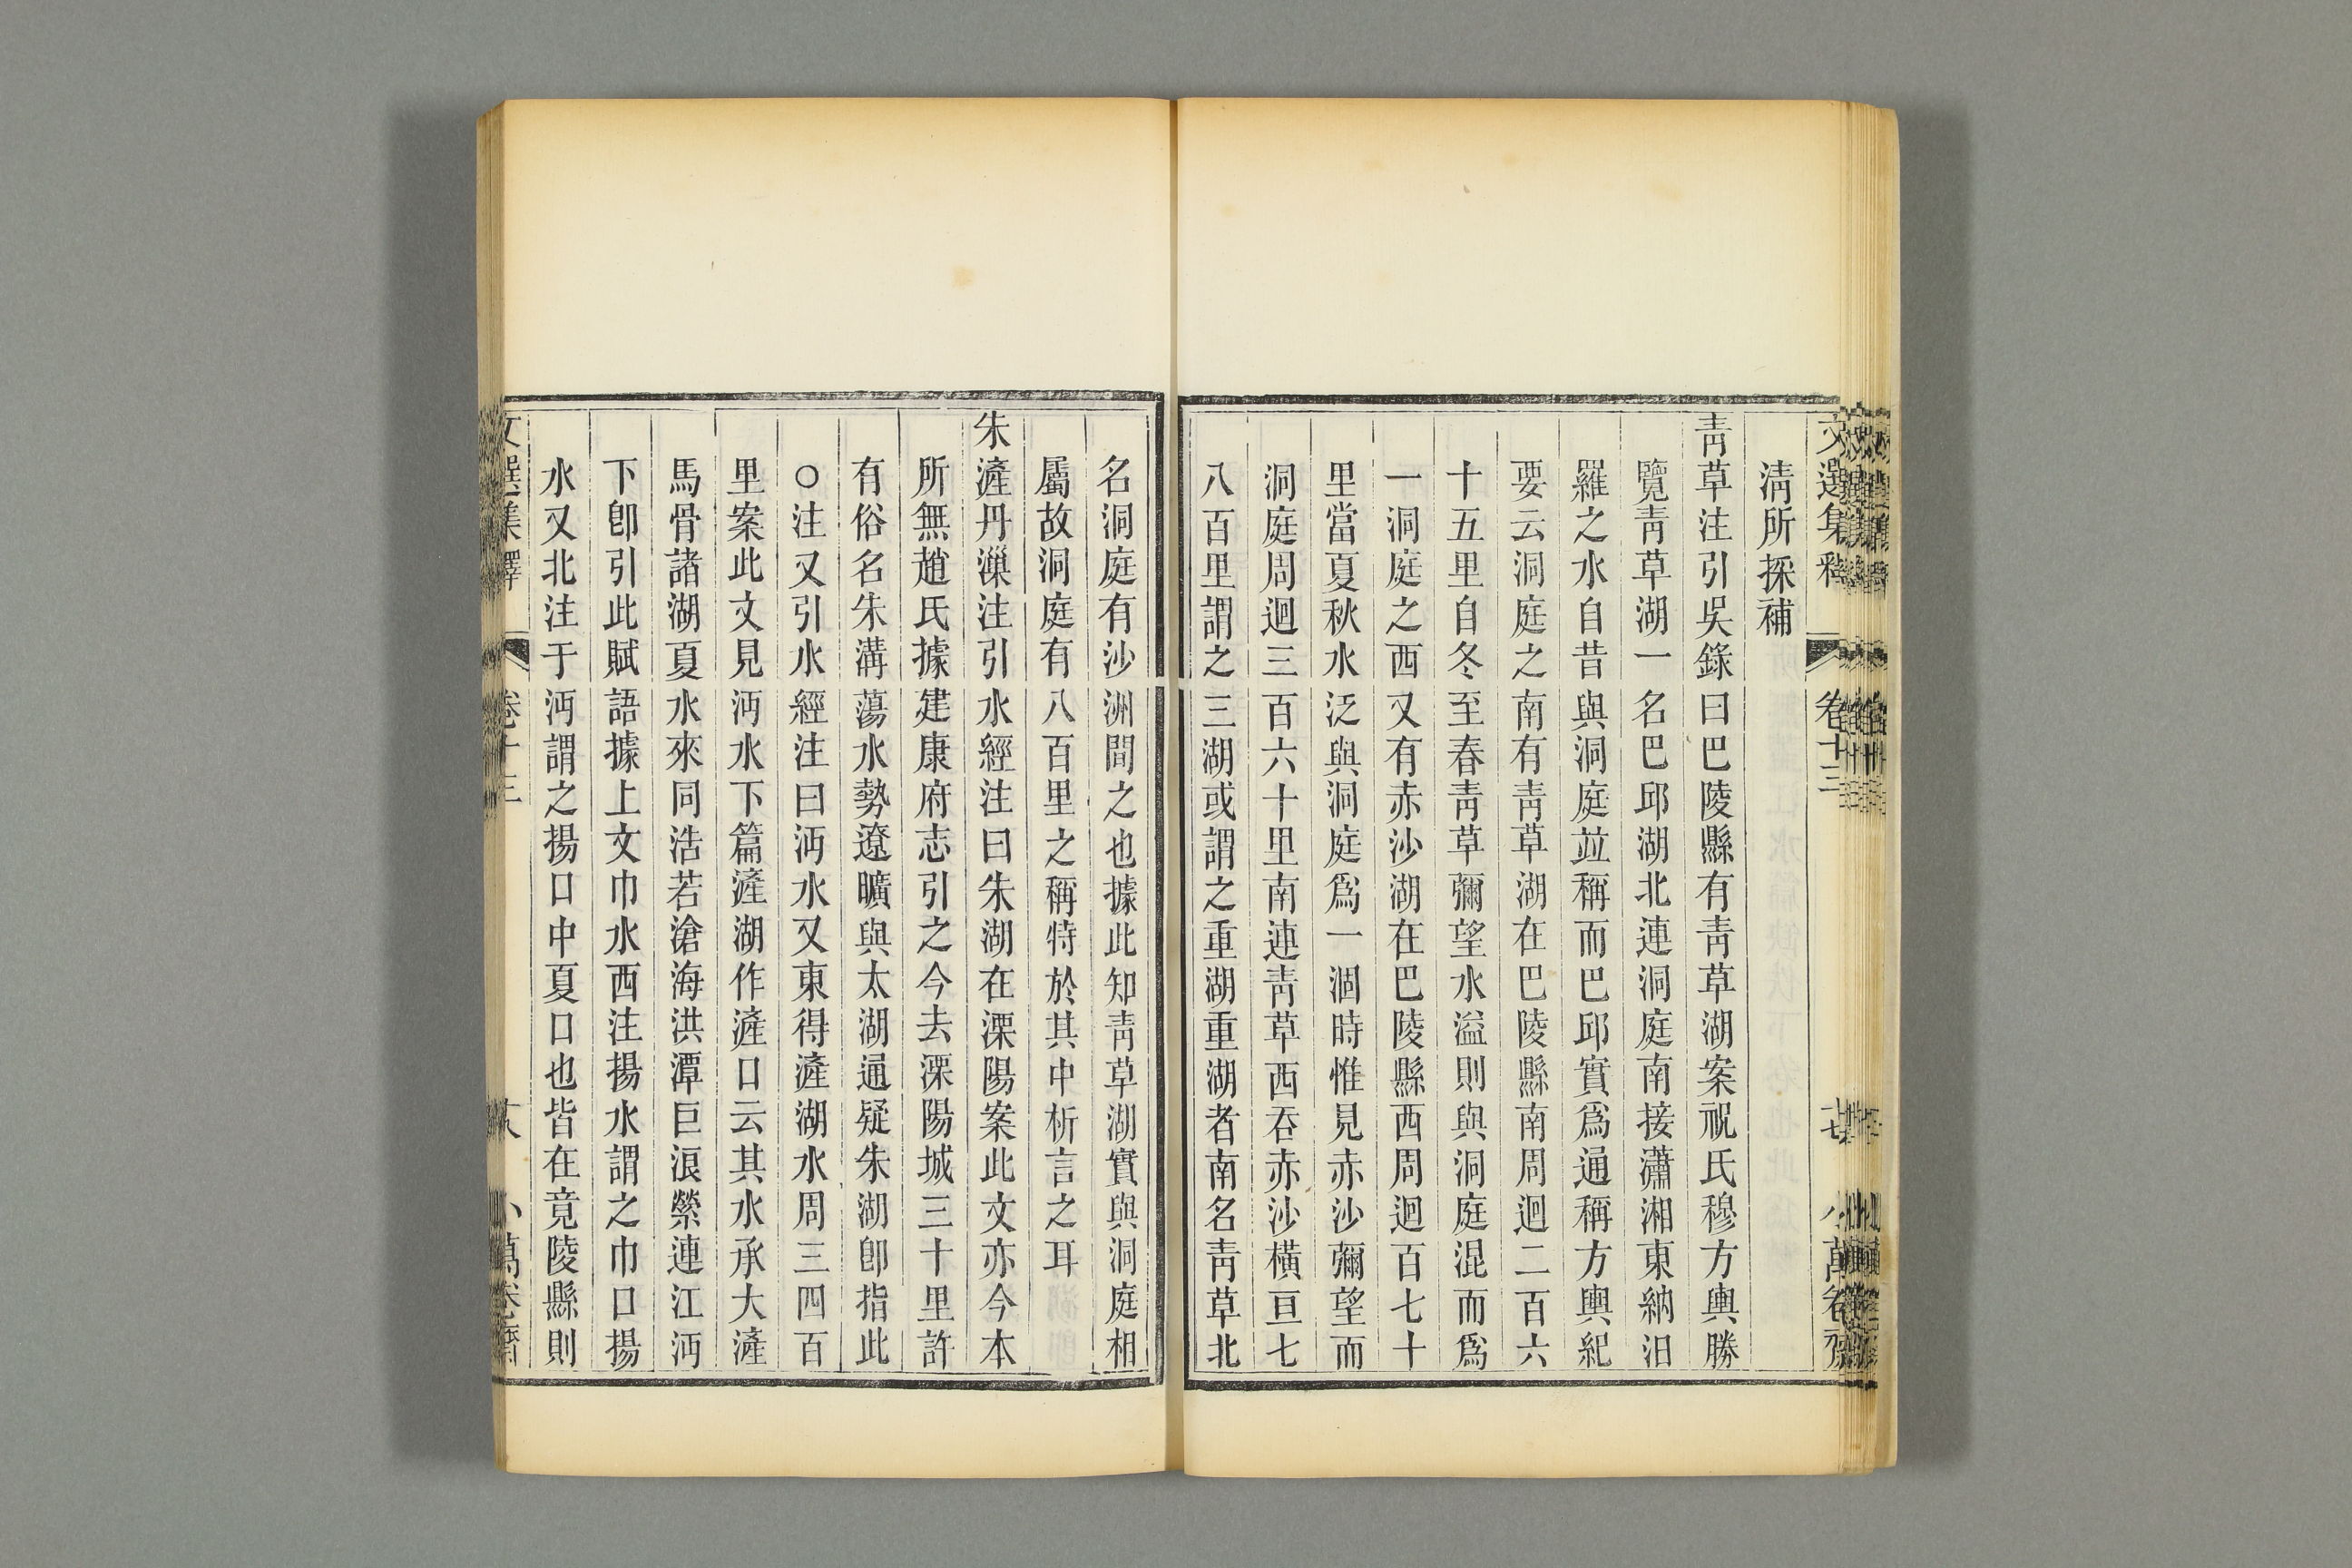 文選集釋 卷十三 十七 小萬卷齋
淸所採補
靑草注引吳錄曰巴陵縣有靑草湖案祝氏穆方輿勝
覽靑草湖一名巴邱湖北連洞庭南接瀟湘東納汨
羅之水自昔與洞庭竝稱而巴邱實爲通稱方輿紀
要云洞庭之南有靑草湖在巴陵縣南周迴二百六
十五里自冬至春靑草彌望水溢則與洞庭混而爲
一洞庭之西又有赤沙湖在巴陵縣西周迴百七十
里當夏秋水泛與洞庭爲一涸時惟見赤沙彌望而
洞庭周迴三百六十里南連靑草西吞赤沙橫亘七
八百里謂之三湖或謂之重湖重湖者南名靑草北
名洞庭有沙洲間之也據此知靑草湖實與洞庭相
屬故洞庭有八百里之稱特於其中析言之耳
朱滻丹漅注引水經注曰朱湖在溧陽案此文亦今本
所無趙氏據建康府志引之今去溧陽城三十里許
有俗名朱溝蕩水勢遼曠與太湖通疑朱湖卽指此
○注又引水經注曰沔水又東得滻湖水周三四百
里案此文見沔水下篇滻湖作滻口云其水承大滻
馬骨諸湖夏水來同浩若滄海洪潭巨浪縈連江沔
下卽引此賦語據上文巾水西注揚水謂之巾口揚
水又北注于沔謂之揚口中夏口也皆在竟陵縣則
文選集釋 卷十三 十八 小萬卷齋